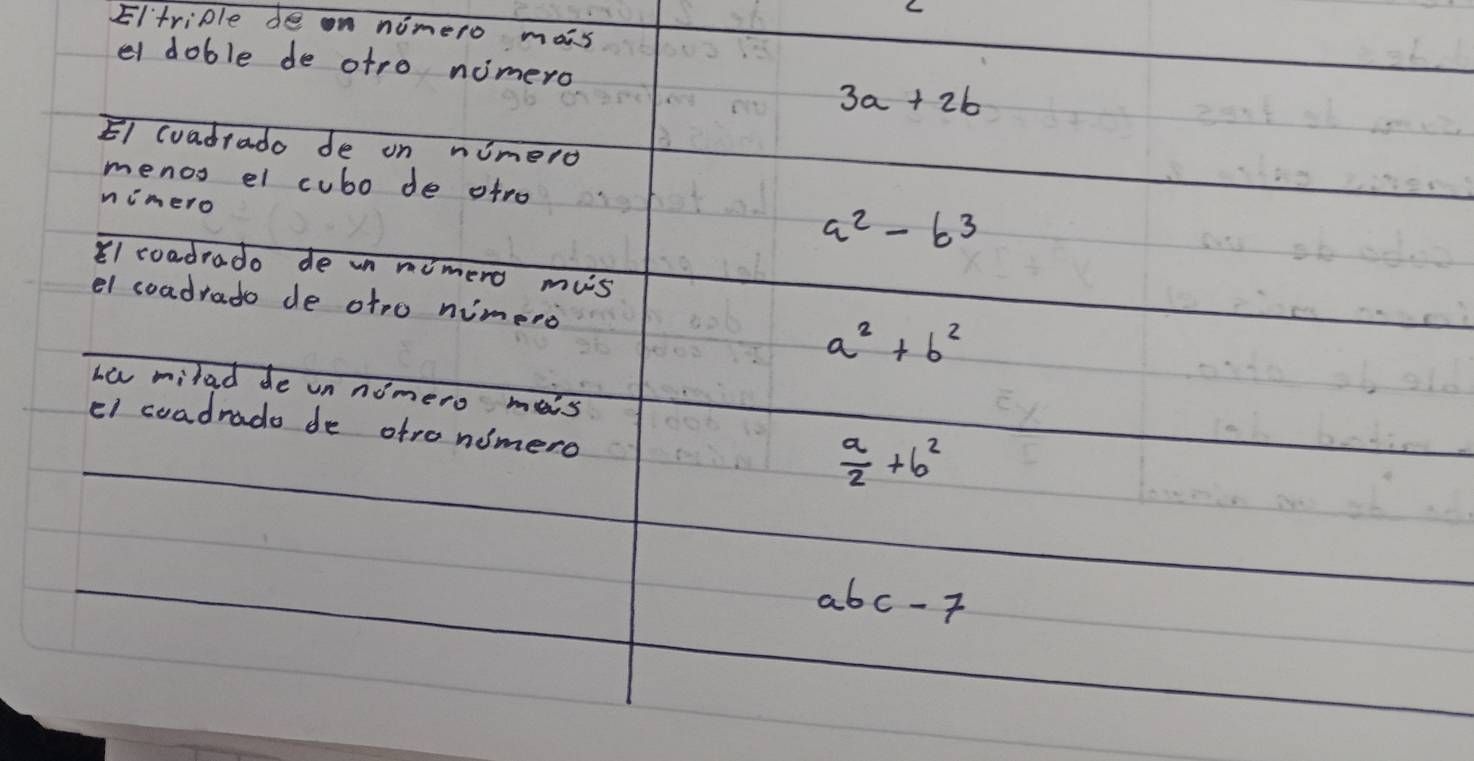 El triple de un número más
el doble de otro número
3a + 2b
El cuadrado de un número
menos el cubo de otro
número
a² - b³
El coadrado de un número más
el coadrado de otro número
a² + b²
La mitad de un número más
el coadrado de otro número
a/2 + b²
abc - 7